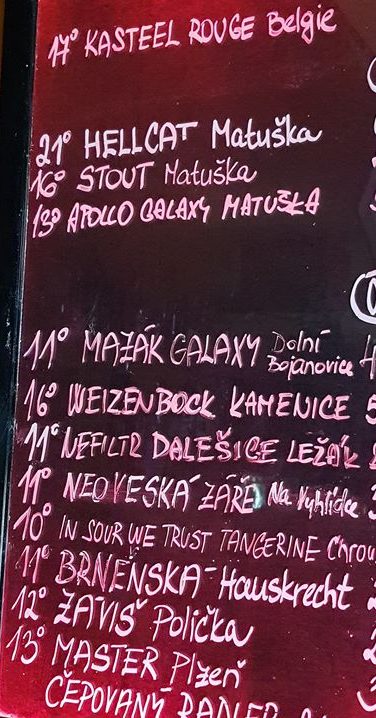 17° KASTEEL ROUGE Belgie
21° HELLCAT Matuška
16° STOUT Matuška
13° APOLLO GALAXY MATUŠKA
11° MAZÁK GALAXY Dolní Bojanovice
16° WEIZENBOCK KAMENICE 5
11° NEFILTR DALEŠICE LEŽÁK
11° NEOVESKÁ ZÁŘE Na Vyhlídce
10° IN SOUR WE TRUST TANGERINE Chrou
11° BRNĚNSKÁ Hauskrecht
12° ZÁVIŠ Polička
13° MASTER Plzeň
ČEPOVANÝ RADLER